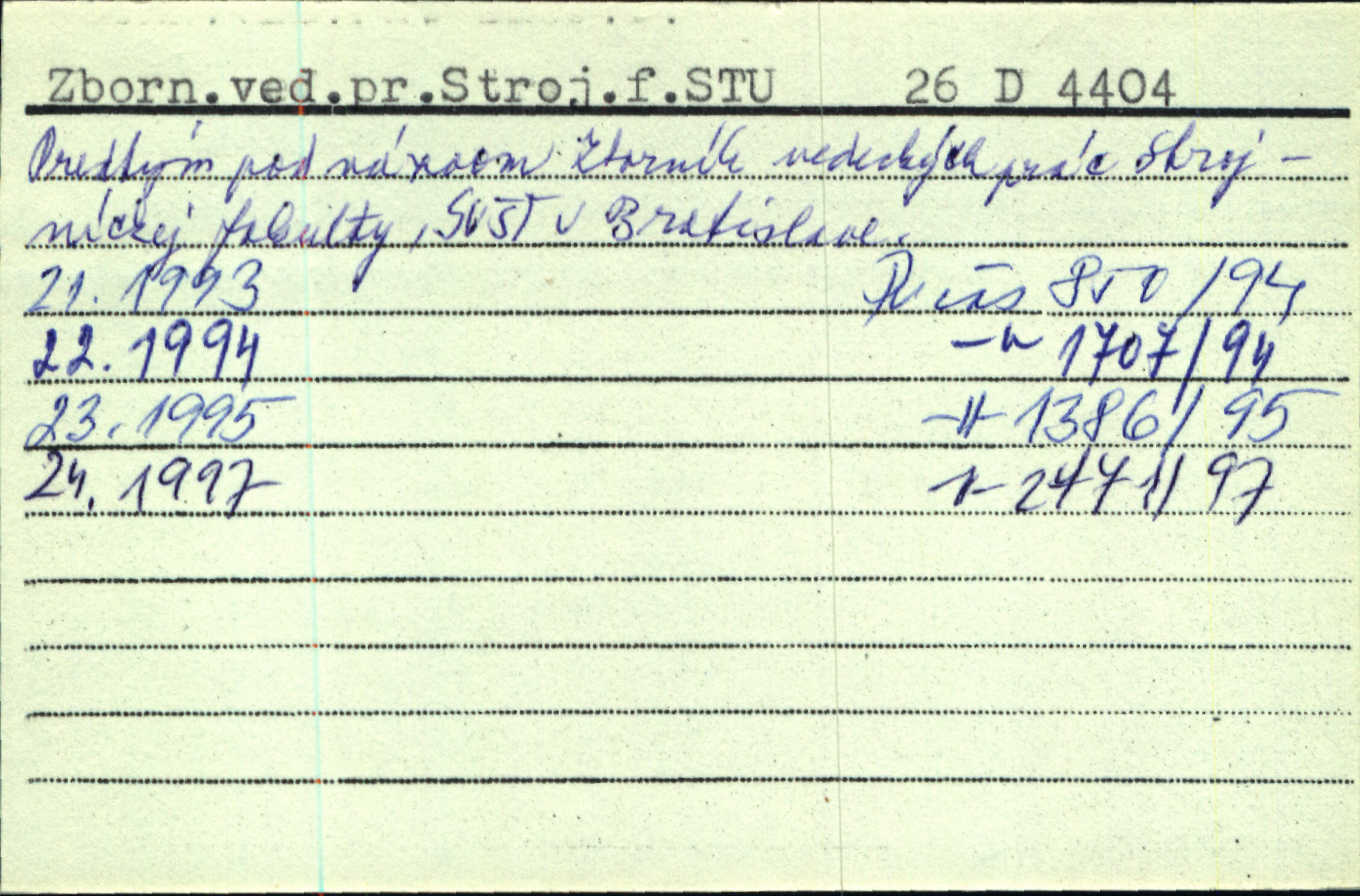 Zborn.ved.pr.Stroj.f.STU 26 D 4404
Predtým pod názvom Zborník vedeckých prác Stroj-
níckej fakulty, SVŠT v Bratislave.
21. 1993 čas 850/94
22. 1994 -"- 1707/94
23. 1995 -"- 1386/95
24. 1997 -"- 2471/97